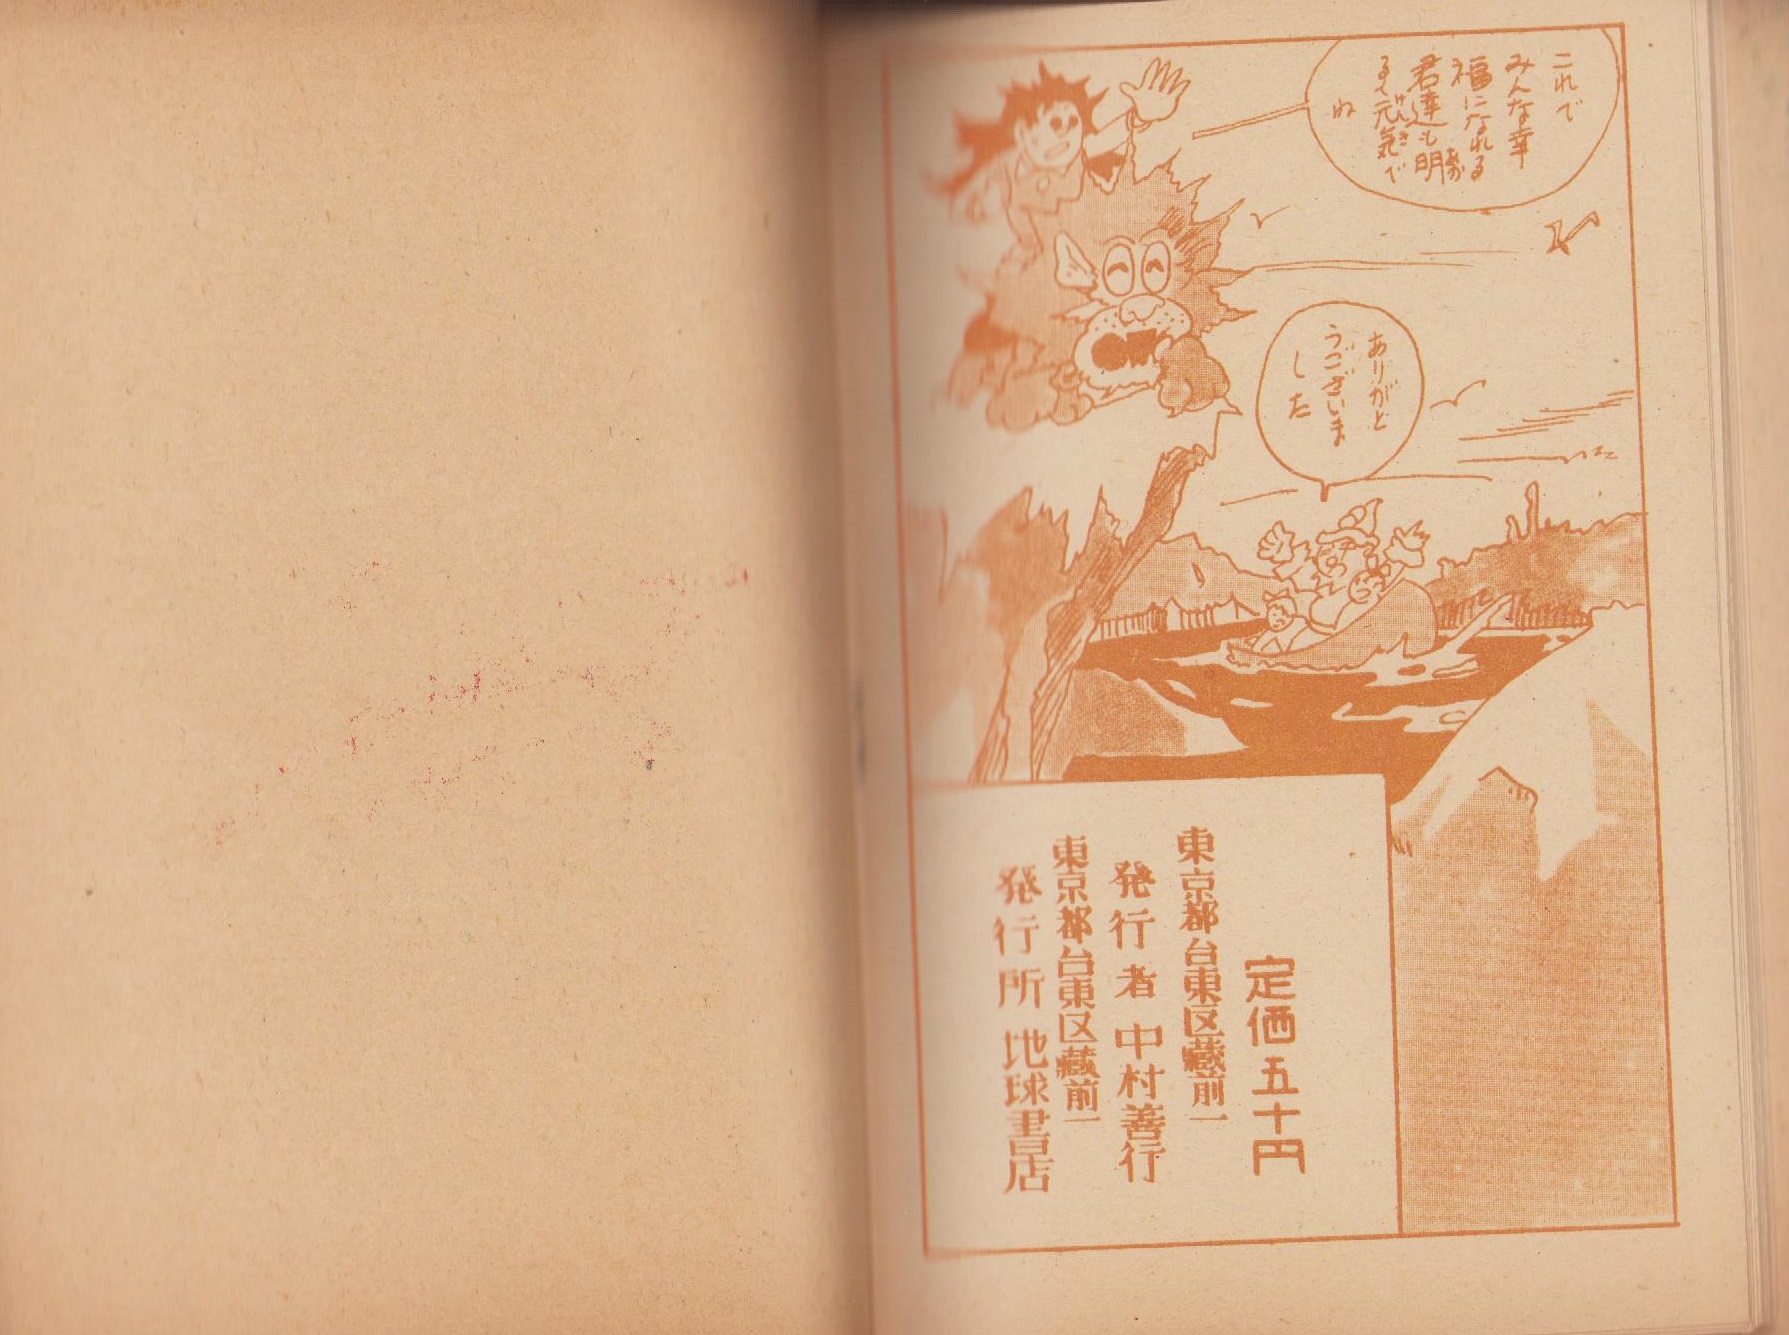 これで
みんな幸
福になれる
君達も明
るく元気で
ね
ありがと
うございま
した
定価五十円
東京都台東区蔵前一
発行者 中村善行
東京都台東区蔵前一
発行所 地球書店